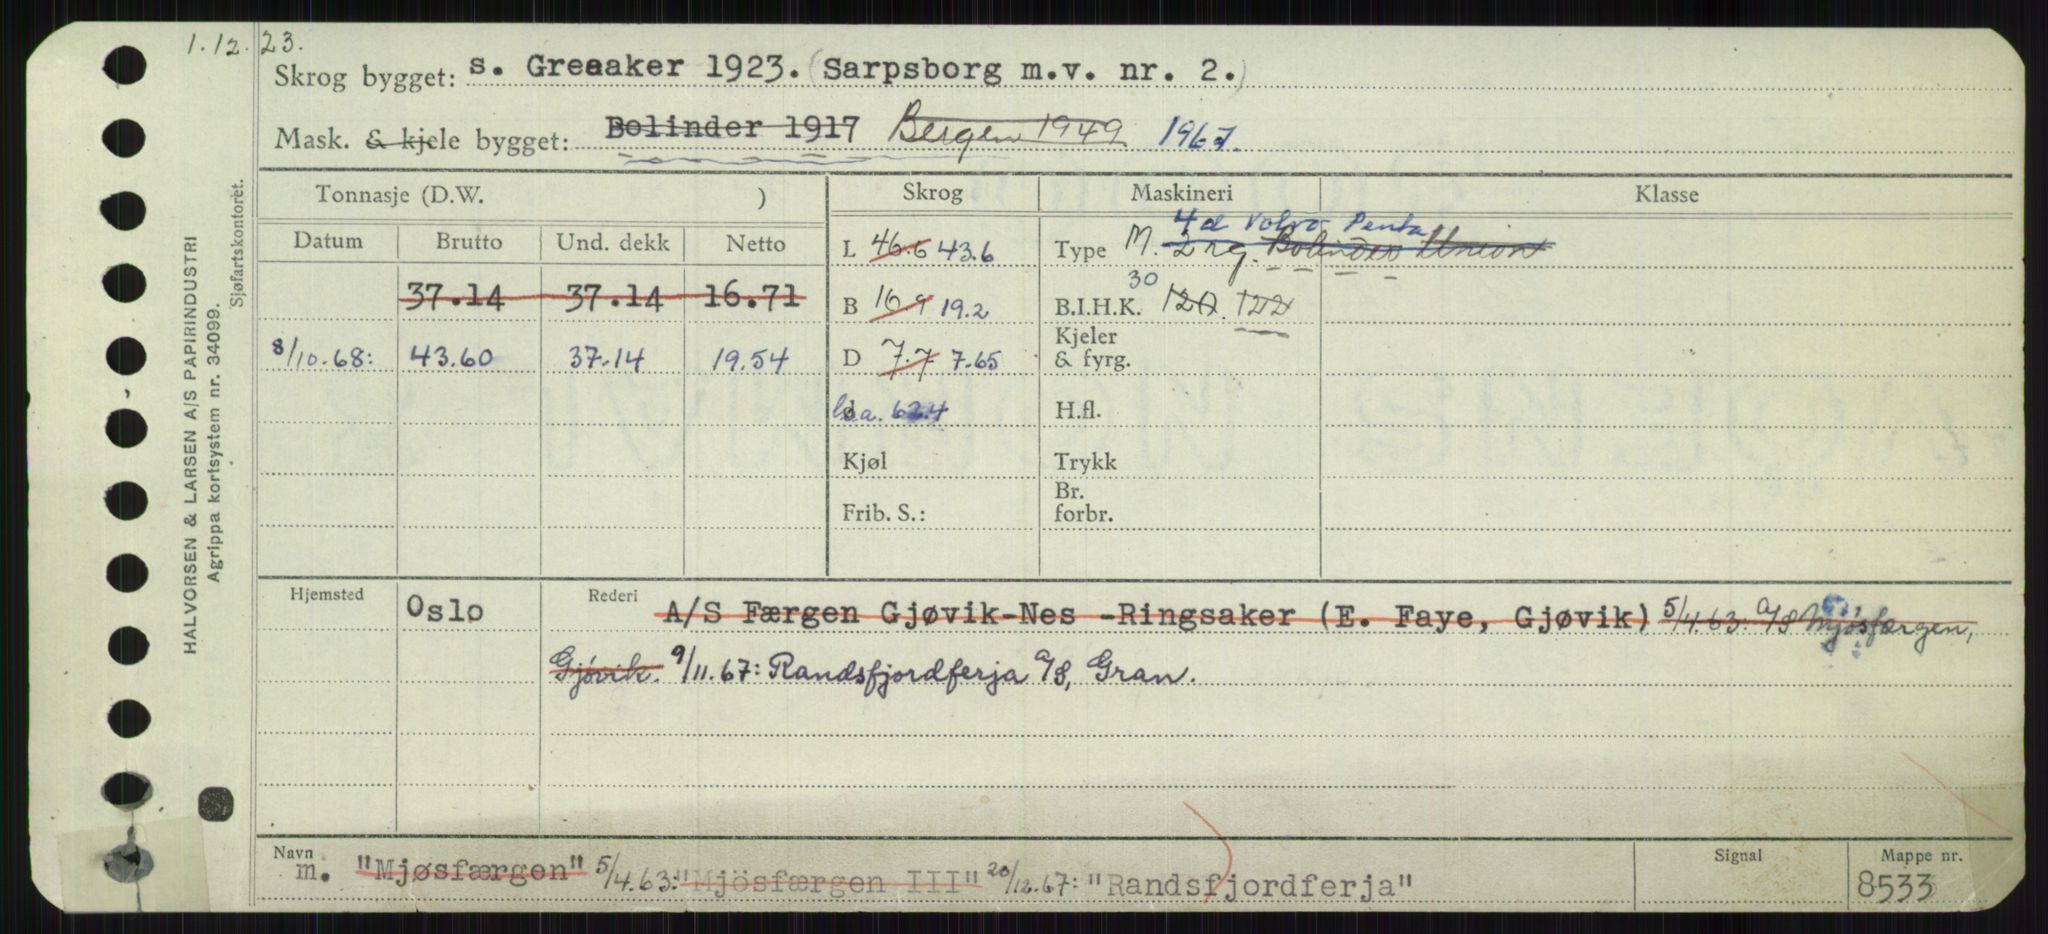 1.12.23.
Skrog bygget: s. Greeaker 1923. (Sarpsborg m.v. nr. 2.)
Mask. & kjele bygget: Bolinder 1917 Bergen 1949 1967.
Tonnasje (D.W. ) Skrog Maskineri Klasse
Datum Brutto Und. dekk Netto
4 d Volvo Penta
L 46.6 43.6 Type M. 2 rg. Bolinder Union
37.14 37.14 16.71
30
B 16.9 19.2 B.I.H.K. 120. 122
8/10.68: 43.60 37.14 19.54
D 7.7 7.65 Kjeler & fyrg.
d H.fl.
Kjøl Trykk
Frib. S.: Br. forbr.
Hjemsted Oslo Rederi A/S Færgen Gjøvik-Nes -Ringsaker (E. Faye, Gjøvik) 5/4.63: A/S Mjøsfærgen,
Gjøvik. 9/11.67: Randsfjordferja A/S, Gran.
Navn Signal Mappe nr.
m. "Mjøsfærgen" 5/4.63: "Mjösfærgen III" 20/12.67: "Randsfjordferja" 8533
HALVORSEN & LARSEN A/S PAPIRINDUSTRI
Agrippa kortsystem nr. 34099.
Sjøfartskontoret.